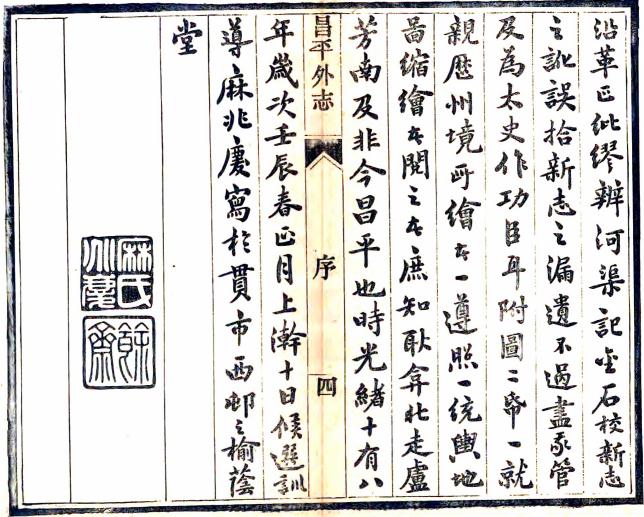 沿革正紕繆辨河渠記金石校新志
之訛誤拾新志之漏遺不過盡我管
及為太史作功臣耳附圖二帋一就
親歷州境所繪者一遵照一統輿地
啚縮繪者閱之者庶知耿弇北走盧
芳南及非今昌平也時光緒十有八
昌平外志
序
四
年歲次壬辰春正月上澣十日候選訓
導麻兆慶寫於貫市西邨之榆蔭
堂
麻氏